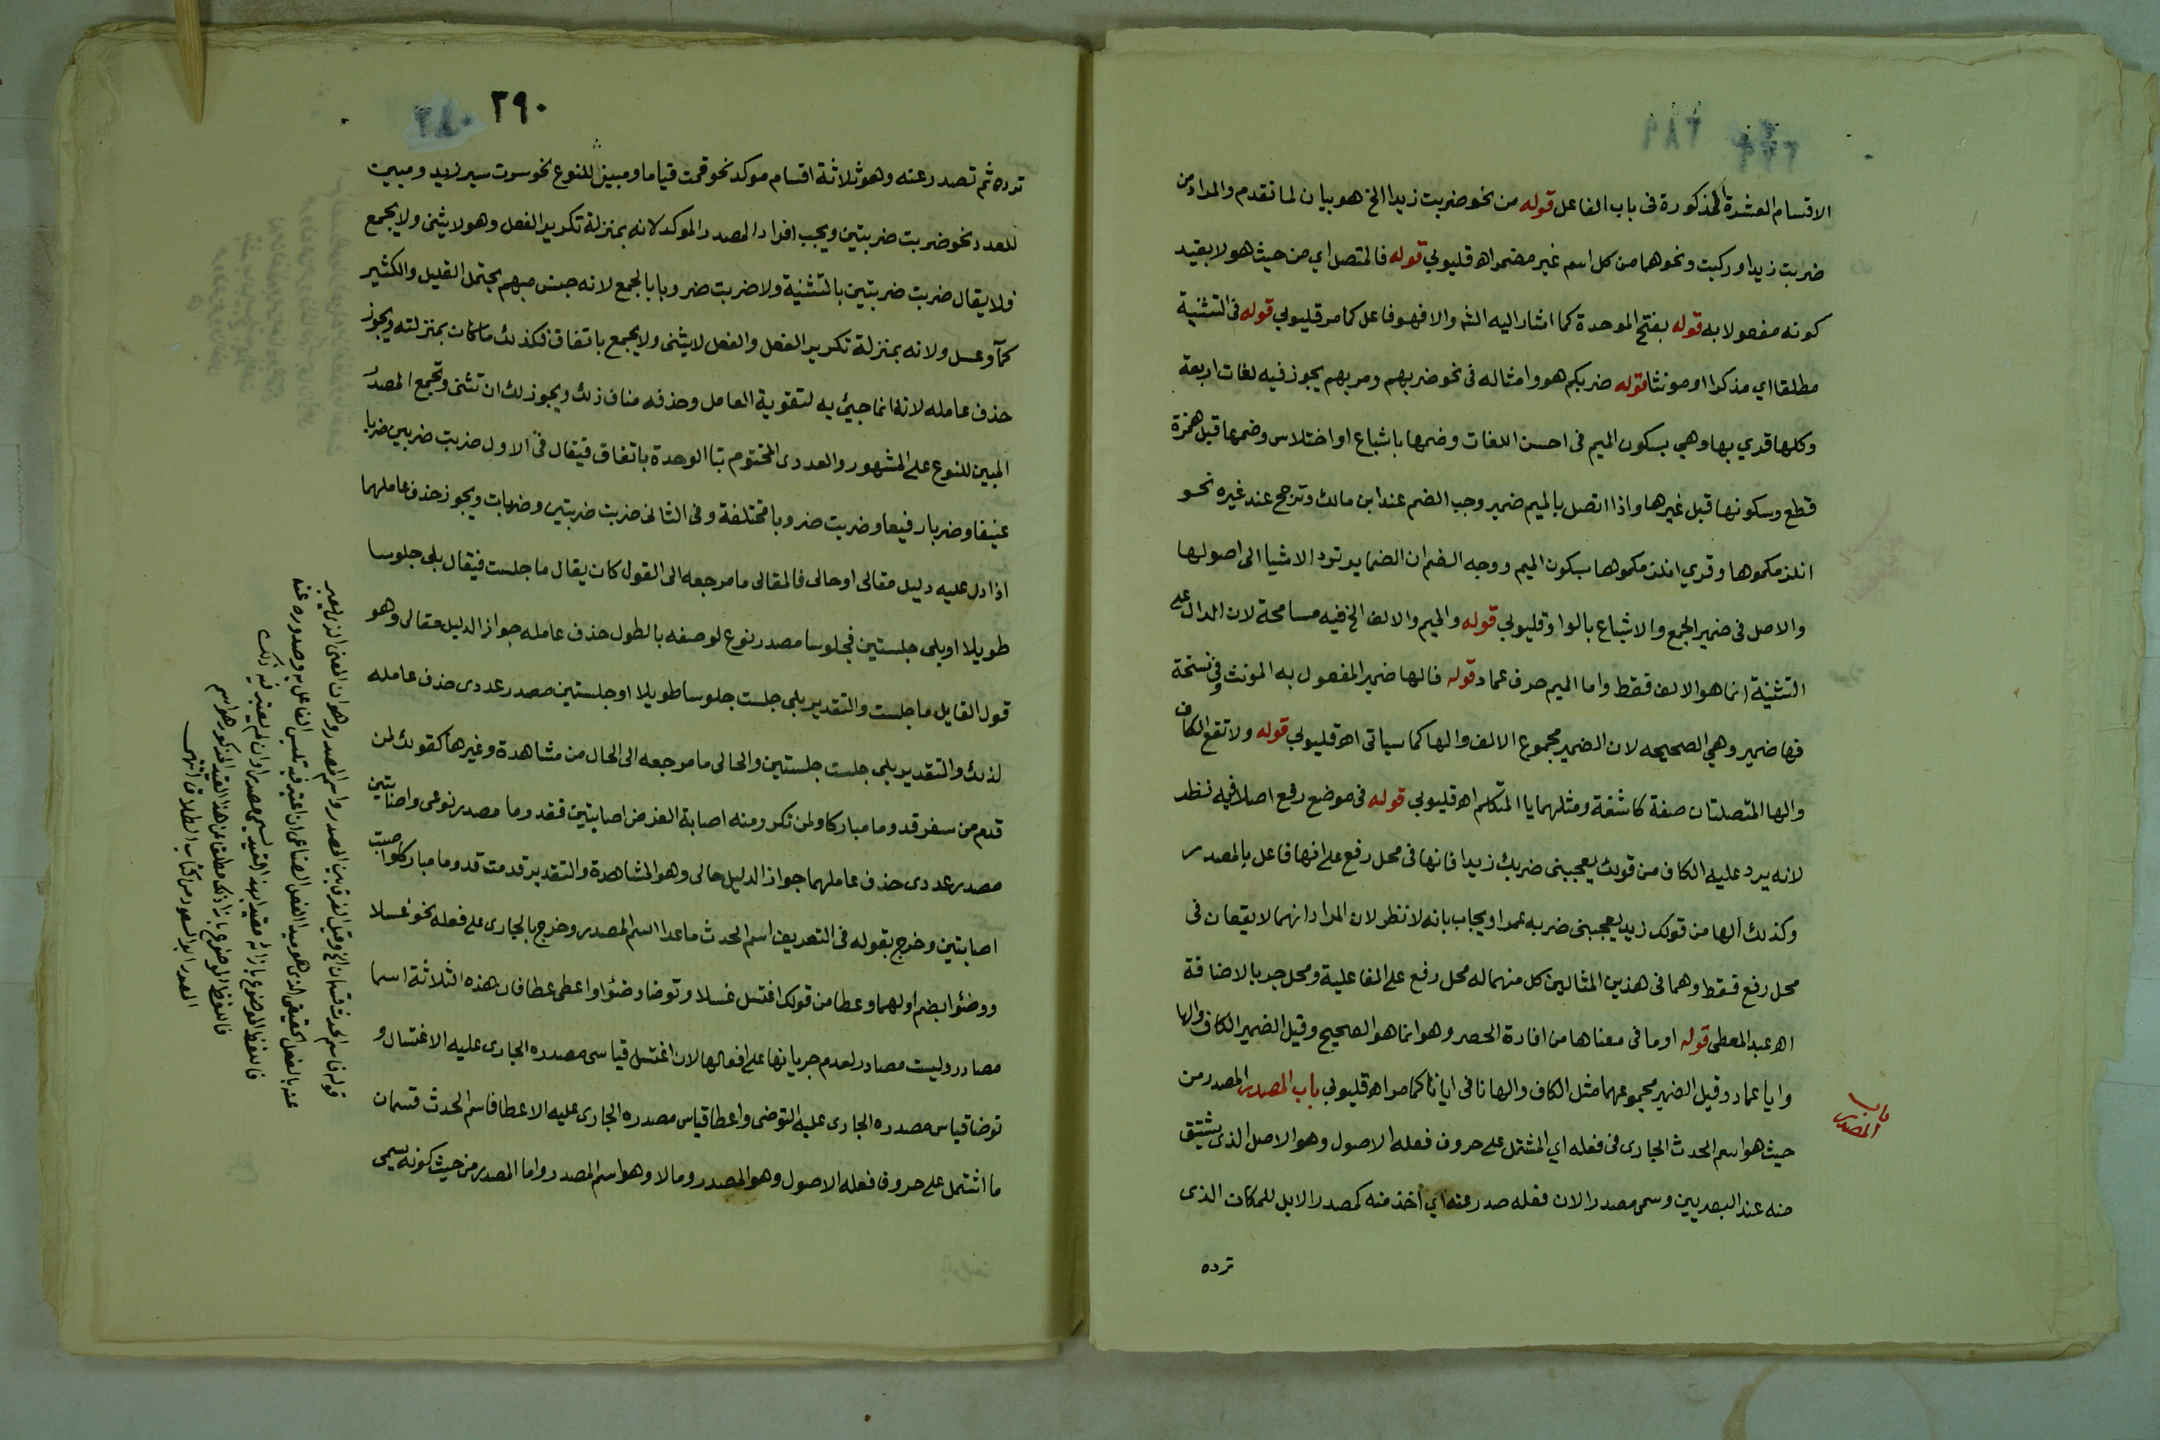 الاقسام العشرة المذكورة فى باب الفاعل قوله من نحو ضربت زيدا الخ هو بيان لما تقدم والمراد من
ضربت زيدا وركبت ونحوهما من كل اسم غير مضمر اهـ قليوبي قوله فالمتصل اي من حيث هو لا بقيد
كونه مفعولا به قوله بفتح الموحدة كما اشار اليه الشـ والا فهو فاعل كما مر قليوبي قوله فى التثنية
مطلقا اي مذكرا او مونثا قوله ضربكم هو وامثاله فى نحو ضربهم ومربهم يجوز فيه لغات اربعة
وكلها قري بها وهي بسكون الميم فى احسن اللغات وضمها باشباع او اختلاس وضمها قبل همزة
قطع وسكونها قبل غيرها واذا اتصل بالميم ضمير وجب الضم عند ابن مالك وترجح عند غيره نحو
انلزمكموها وقري انلزمكموها بسكون الميم ووجه الضم ان الضماير ترد الاشيا الى اصولها
والاصل فى ضمير الجمع والاشباع بالواو قليوبي قوله والميم والالف الخ فيه مسامحة لان الدال على
التثنية انما هو الالف فقط واما الميم حرف عماد قوله فالها ضمير المفعول به المونث وفى نسخة
فها ضمير وهي الصحيحه لان الضمير مجموع الالف والها كما سياتى اهـ قليوبي قوله ولا تقع الكاف
والها المتصلتان صفة كاشفة ومثلهما يا المتكلم اهـ قليوبي قوله فى موضع رفع اصلا فيه نظر
لانه يرد عليه الكاف من قولك يعجبنى ضربك زيدا فانها فى محل رفع على انها فاعل بالمصدر
وكذلك الها من قولك زيد يعجبنى ضربه عمرا ويجاب بانه لا نظر لان المراد انهما لا يقعان فى
محل رفع فقط وهما فى هذين المثالين كل منهما له محل رفع على الفاعلية ومحل جر بالاضافة
اهـ عبد المعطى قوله او ما فى معناها من افادة الحصر وهو انما هو الصحيح وقيل الضمير الكاف والها
وايا عماد وقيل الضمير مجموعهما مثل الكاف والها نا فى ايانا كما مر اهـ قليوبي باب المصدر المصدر من
حيث هو اسم الحدث الجارى فى فعله اي المشتمل على حروف فعله الاصول وهو الاصل الذى يشتق
منه عند البصريين وسمى مصدرا لان فعله صدر عنه اي أخذ منه كمصدر الابل للمكان الذى
ترده
باب
المصدر
٢٩٠
ترده ثم تصدر عنه وهو ثلاثة اقسام موكد نحو قمت قياما ومبين للنوع نحو سرت سير زيد ومبين
للعدد نحو ضربت ضربتين ويجب افراد المصدر الموكد لانه بمنزلة تكرير الفعل وهو لا يثنى ولا يجمع
فلا يقال ضربت ضربتين بالتثنية ولا ضربت ضروبا بالجمع لانه جنس مبهم يحتمل القليل والكثير
كمآ وعسل ولانه بمنزلة تكرير الفعل والفعل لا يثنى ولا يجمع باتفاق فكذلك ما كان بمنزلته ويجوز
حذف عامله لانه انما جيئ به لتقوية العامل وحذفه مناف ذلك ويجوز لك ان تثنى وتجمع المصدر
المبين للنوع على المشهور والعددى المختوم بتا الوحدة باتفاق فيقال فى الاول ضربت ضربين ضربا
عنيفا وضربا رفيعا وضربت ضروبا مختلفة وفى الثانى ضربت ضربتين وضربات ويجوز حذف عاملهما
اذا دل عليه دليل مقالى او حالى فالمقالى ما مرجعه الى القول كان يقال ما جلست فيقال بلى جلوسا
طويلا او بلى جلستين فجلوسا مصدر نوع لوصفه بالطول حذف عامله جواز الدليل مقالى وهو
قول القايل ما جلست والتقدير بلى جلست جلوسا طويلا او جلستين مصدر عددى حذف عامله
لذلك والتقدير بلى جلست جلستين والحالى ما مرجعه الى الحال من مشاهدة وغيرها كقولك لمن
قدم من سفر قدوما مباركا ولمن تكرر منه اصابة الغرض اصابتين فقدوما مصدر نوعى واصابتين
مصدر عددى حذف عاملهما جواز الدليل حالى وهو المشاهدة والتقدير قدمت قدوما مباركا واصبت
اصابتين وخرج بقوله فى التعريف اسم الحدث ما عدا اسم المصدر وخرج بالجارى على فعله نحو غسلا
ووضئوا بضم اولهما وعطا من قولك اغتسل غسلا وتوضا وضئوا واعطى عطا فان هذه الثلاثة اسما
مصادر وليست مصادر لعدم جريانها على افعالها لان اغتسل قياسى مصدره الجارى عليه الاغتسال و
توضا قياس مصدره الجارى عليه التوضى واعطا قياس مصدره الجارى عليه الاعطا فاسم الحدث قسمان
ما اشتمل على حروف فعله الاصول وهو المصدر ومالا وهو اسم المصدر واما المصدر من حيث كونه يسمى
قوله فاسم الحدث قسمان الخ وقيل الفرق بين المصدر واسم المصدر وهو ان المعنى الذى يعبر
عنه بالفعل الحقيقى الذى هو مبدا الفعل الصناعى ان اعتبر فيه تلبس الفاعل به وصدوره عنه
فاللفظ الموضوع بازائه مقيدا بهذا القيد يسمى مصدرا وان لم يعتبر فيه ذلك
فاللفظ الموضوع بازا ذلك مطلقا عن هذا القيد المذكور هو اسم
المصدر ابو السعود من كتاب الطلاق انتهى